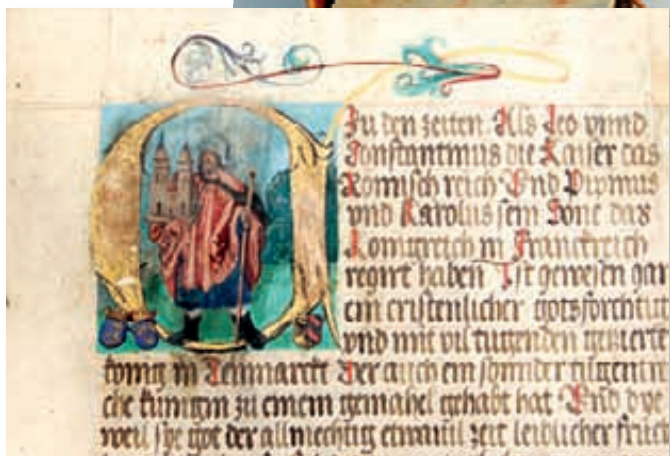 Zu den zeiten. Als Leo vnnd
Constantinus die Kaiser das
Romisch reich Vnd Pipinus
vnd Karolus sein Sone das
Konigreich in Franckreich
regirt haben Ist gewesen gar
ein cristenlicher gotsforchtig
vnd mit vil tugenden gezierte
konig in Dennmarckt Der auch ein sonnder
che kunigin zu einem gemahel gehabt hat Vnd dye
weil sye got der allmechtig etwauil zeit leiblicher fruch